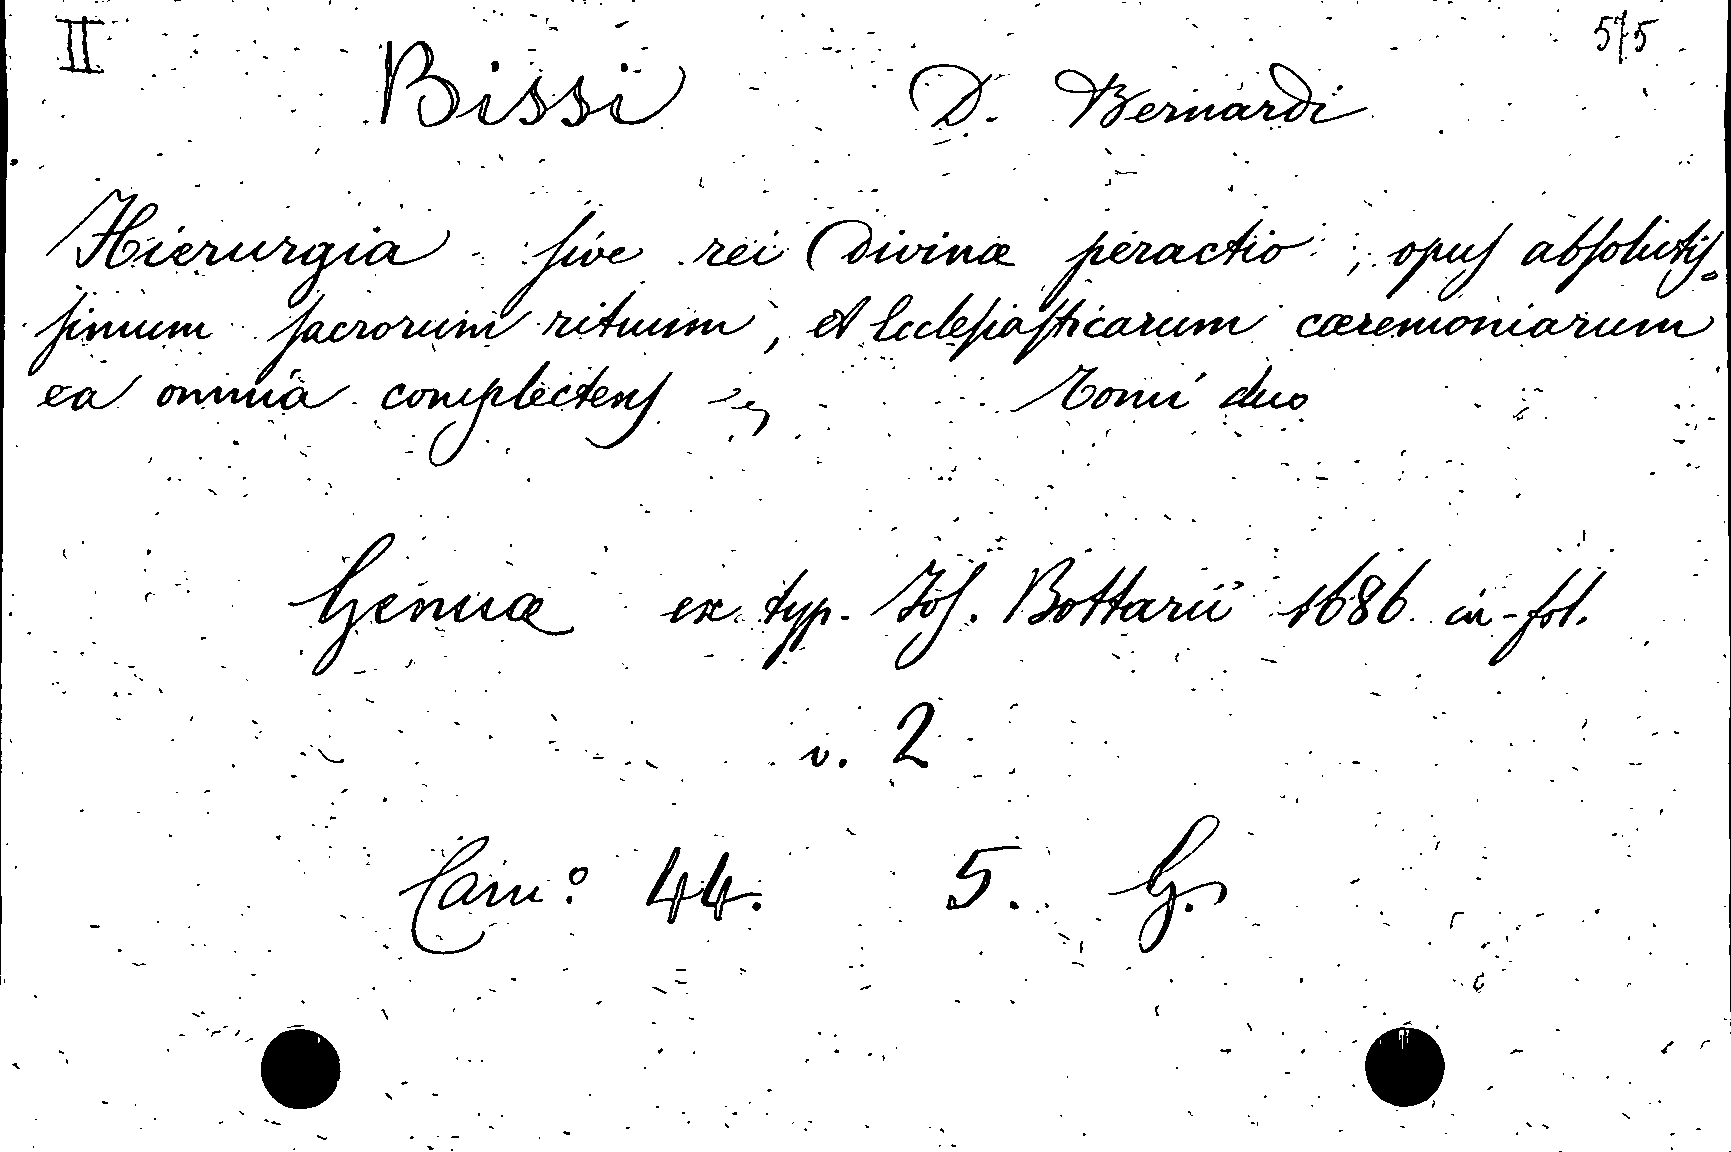 II 575
Bissi D. Bernardi
Hierurgia sive rei Divinæ peractio ; opus absolutis-
simum sacrorum rituum, et Ecclesiasticarum cæremoniarum
ea omnia complectens Tomi duo
Genuæ ex typ. Jos. Bottarii 1686 in-fol.
v. 2
Cam: 44. 5. G.